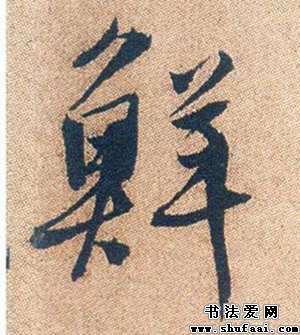 鮮
书法爱网
www.shufaai.com